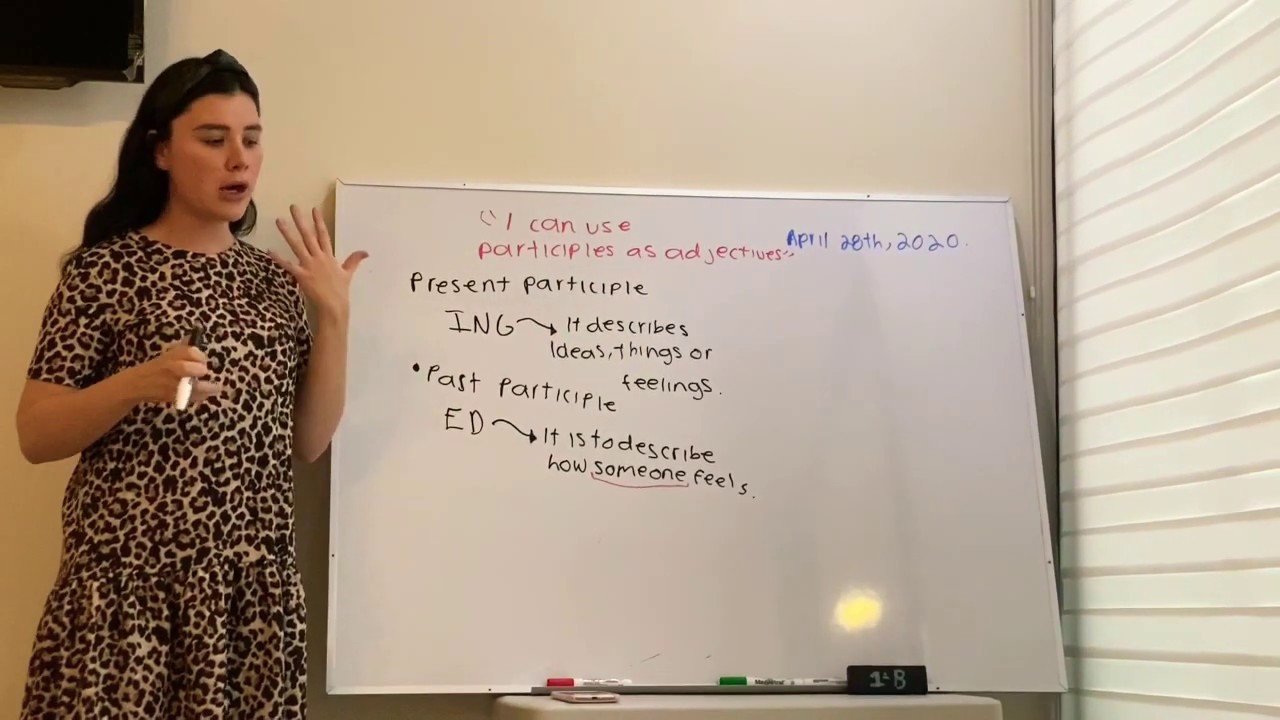 "I can use
participles as adjectives"
April 28th, 2020.
Present participle
ING → It describes
Ideas, things or
feelings.
• Past Participle
ED → It is to describe
how someone feels.
1-B